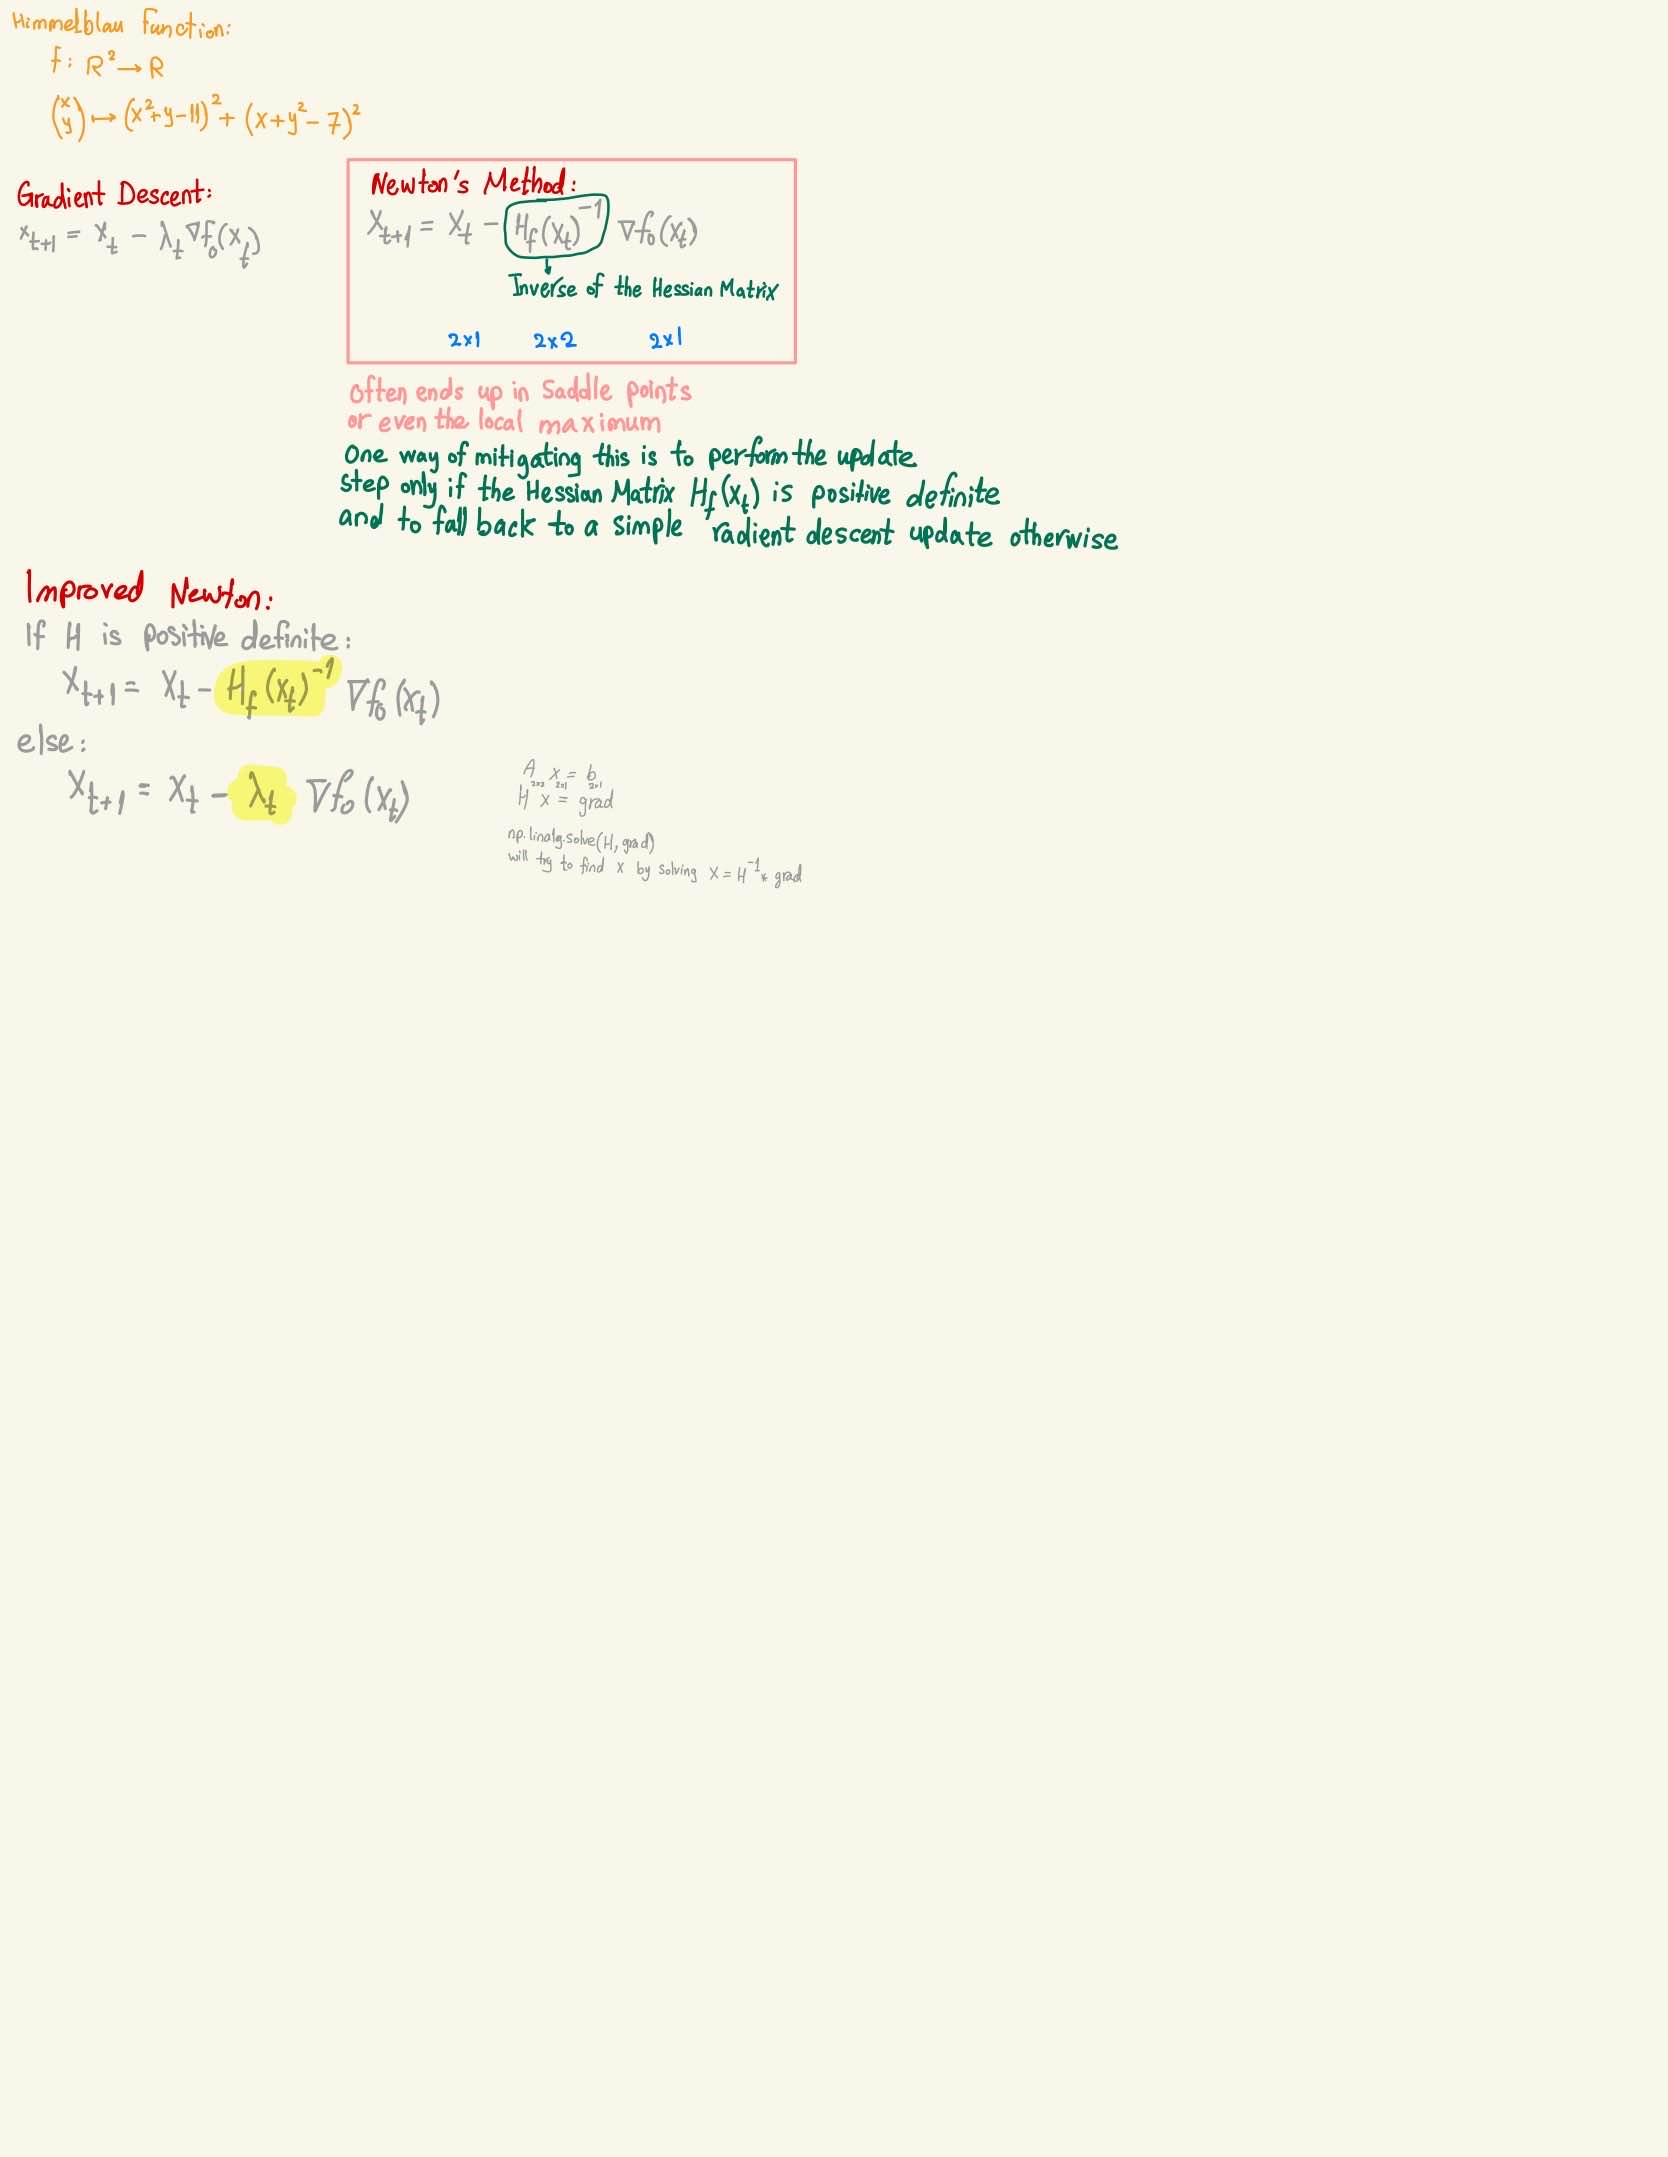 Himmelblau function:
f: R² → R
(x y) ↦ (x²+y-11)² + (x+y²-7)²
Gradient Descent:
x_{t+1} = x_t - λ_t ∇f_0(x_t)
Newton's Method:
X_{t+1} = X_t - H_f(X_t)^{-1} ∇f_0(X_t)
Inverse of the Hessian Matrix
2×1 2×2 2×1
Often ends up in Saddle points
or even the local maximum
One way of mitigating this is to perform the update
step only if the Hessian Matrix H_f(X_t) is positive definite
and to fall back to a simple radient descent update otherwise
Improved Newton:
If H is positive definite:
X_{t+1} = X_t - H_f(X_t)^{-1} ∇f_0(X_t)
else:
X_{t+1} = X_t - λ_t ∇f_0(X_t)
A x = b
2×2 2×1 2×1
H x = grad
np.linalg.solve(H, grad)
will try to find x by solving X = H^{-1} * grad